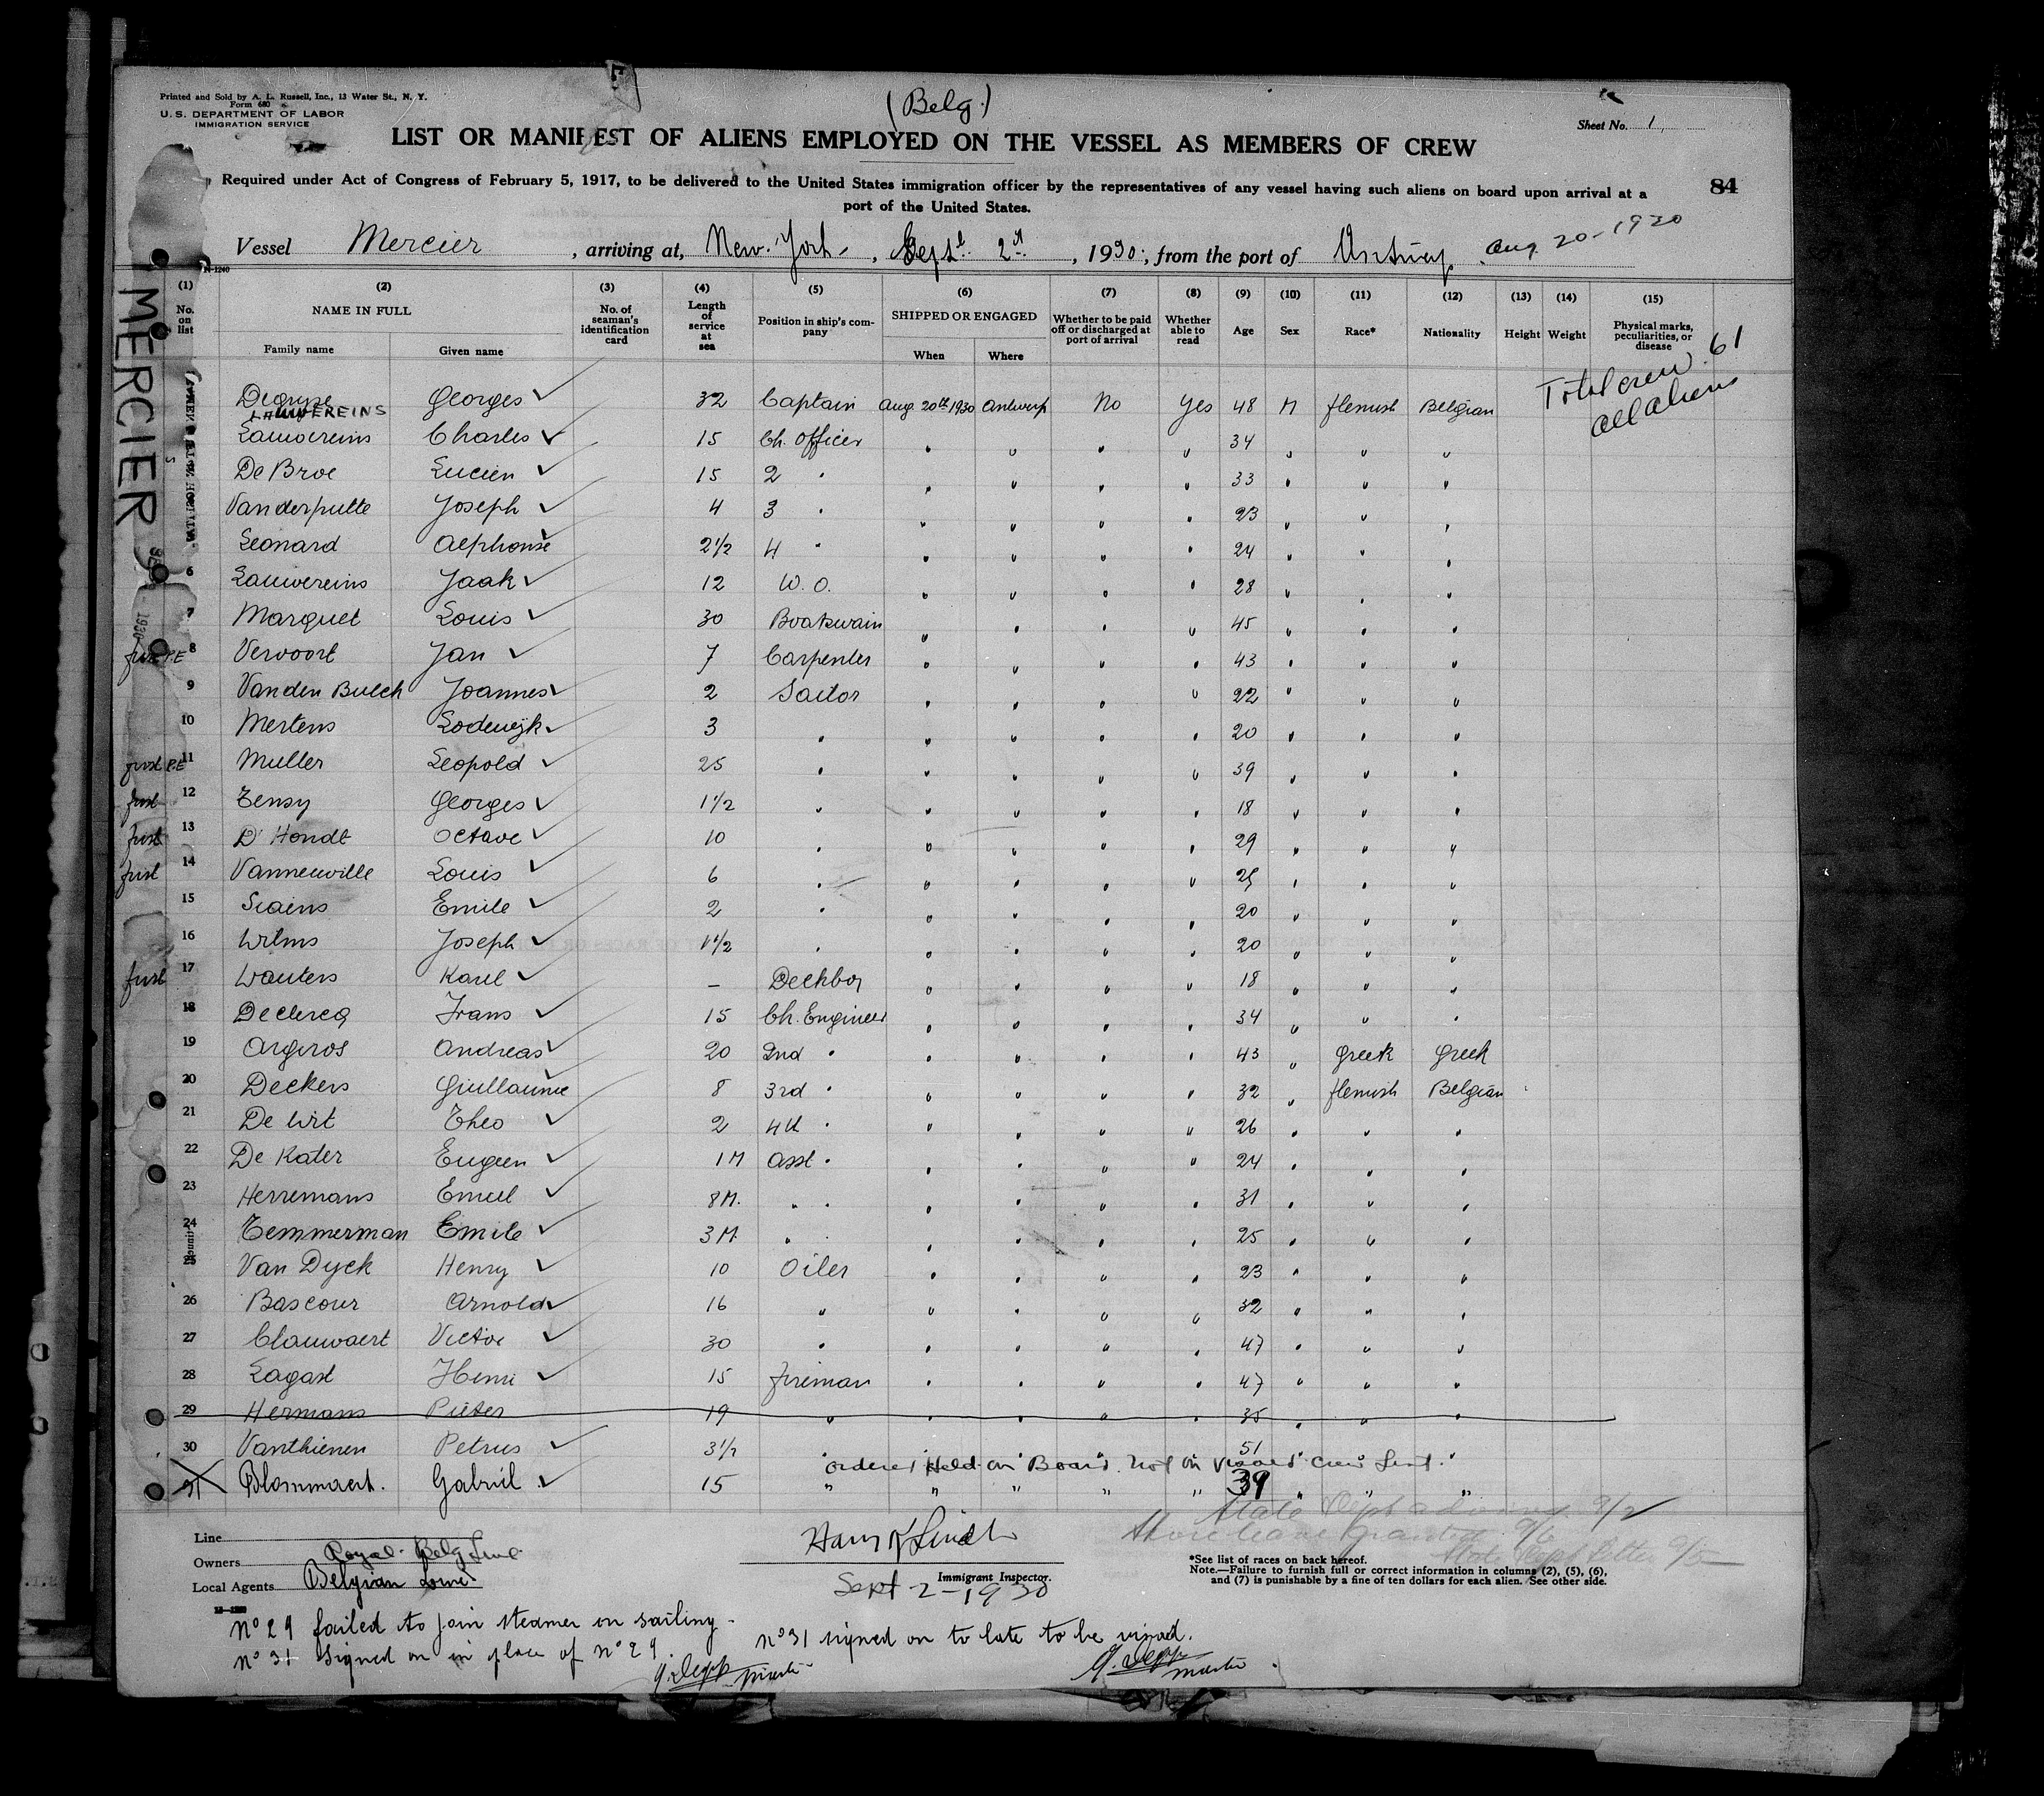 Printed and Sold by A. L. Russell, Inc., 13 Water St., N. Y.
Form 680
U. S. DEPARTMENT OF LABOR
IMMIGRATION SERVICE
(Belg.)
Sheet No. 1
LIST OR MANIFEST OF ALIENS EMPLOYED ON THE VESSEL AS MEMBERS OF CREW
Required under Act of Congress of February 5, 1917, to be delivered to the United States immigration officer by the representatives of any vessel having such aliens on board upon arrival at a
port of the United States.
84
Vessel Mercier, arriving at, New-York, Sept. 2d, 1930, from the port of Antwerp Aug. 20-1930
MERCIER
(1) (2) (3) (4) (5) (6) (7) (8) (9) (10) (11) (12) (13) (14) (15)
No. on list NAME IN FULL Family name Given name No. of seaman's identification card Length of service at sea Position in ship's company SHIPPED OR ENGAGED When Where Whether to be paid off or discharged at port of arrival Whether able to read Age Sex Race* Nationality Height Weight Physical marks, peculiarities, or disease
Total crew 61
all aliens
Degrype Georges ✓ 32 Captain Aug. 20th 1930 Antwerp No Yes 48 M flemish Belgian
LAUWEREINS
Lauwereins Charles ✓ 15 Ch. Officer " " " " 34 " " "
De Broe Lucien ✓ 15 2 " " " " " 33 " " "
Vanderputte Joseph ✓ 4 3 " " " " " 23 " " "
Leonard Alphonse 2 1/2 4 " " " " " 24 " " "
6 Lauwereins Jaak ✓ 12 W. O. " " " " 28 " " "
7 Marquet Louis ✓ 30 Boatswain " " " " 45 " " "
8 Vervoort Jan ✓ 7 Carpenter " " " " 43 " " "
9 Vanden Bulck Joannes ✓ 2 Sailor " " " " 22 " " "
10 Mertens Lodewijk ✓ 3 " " " " " 20 " " "
first P.E 11 Muller Leopold ✓ 25 " " " " " 39 " " "
first 12 Tensy Georges ✓ 1 1/2 " " " " " 18 " " "
first 13 D'Hondt Octave ✓ 10 " " " " " 29 " " "
first 14 Vanneuville Louis ✓ 6 " " " " " " " "
15 Emile ✓ 2 " " " " " 20 " " "
16 Wilms Joseph ✓ 1 1/2 " " " " " 20 " " "
first 17 Wauters Karel ✓ — Deckboy " " " " 18 " " "
18 Declercq Frans ✓ 15 Ch. Engineer " " " " 34 " " "
19 Argiros Andreas ✓ 20 2nd " " " " " 43 " Greek Greek
20 Deckers Giullaume 8 3rd " " " " " 32 " flemish Belgian
21 De Wit Theo ✓ 2 4th " " " " " 26 " " "
22 De Kater Eugeen ✓ 1 M asst " " " " " 24 " " "
23 Herremans Emiel ✓ 8 M. " " " " " " 31 " " "
24 Temmerman Emile ✓ 3 M. " " " " " 25 " " "
25 Van Dyck Henry ✓ 10 Oiler " " " " 23 " " "
26 Bascour Arnold ✓ 16 " " " " " 32 " " "
27 Clauwaert Victor ✓ 30 " " " " " 47 " " "
28 Lagast Henri ✓ 15 fireman " " " " 47 " " "
29 Hermans Pieter 19 " " " " " 35 " " "
30 Vanthienen Petrus ✓ 3 1/2 " " " " " 51 " " "
ordered Held on Board. Not on Visaed Crew List.
31 Blommaert. Gabriel ✓ 15 " " " " " 39 " " "
State Dept 9/2
Shore leave granted 9/6
State Dept letter 9/5
Line
Owners Royal Belg Line
Local Agents Belgian Line
Sept-2-1930
Immigrant Inspector.
*See list of races on back hereof.
Note.—Failure to furnish full or correct information in columns (2), (5), (6),
and (7) is punishable by a fine of ten dollars for each alien. See other side.
No 29 failed to join steamer on sailing.
No 31 Signed on in place of No 29.
master
No 31 signed on to late to be visaed.
master